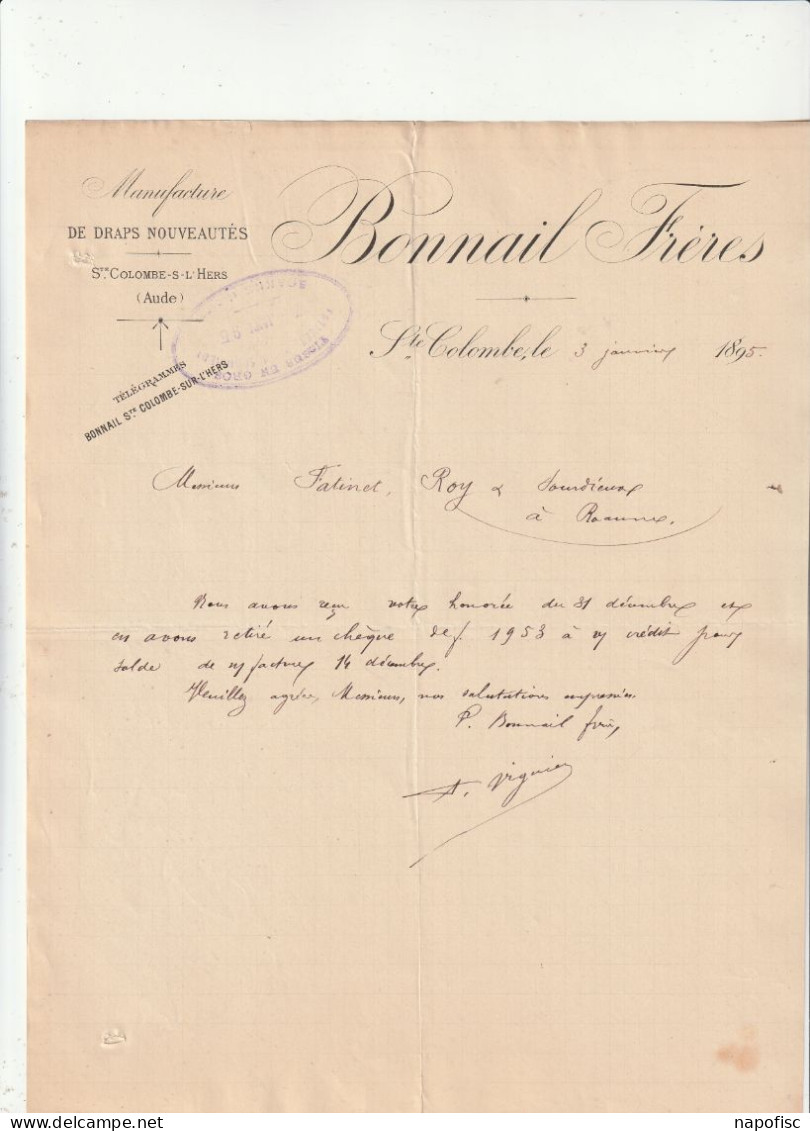 Manufacture
DE DRAPS NOUVEAUTÉS
STE COLOMBE-S-L'HERS
(Aude)
TÉLÉGRAMMES
BONNAIL STE COLOMBE-SUR-L'HERS
Bonnail Frères
Ste Colombe, le 3 janvier 1895.
EN GROS
Messieurs Fatinet, Roy &
à Roanne.
Nous avons reçu votre honorée du 31 décembre et
en avons retiré un chèque de f. 1953 à v/ crédit pour
solde de n/ facture 14 décembre.
Veuillez agréer, Messieurs, nos salutations empressées.
P. Bonnail frères
A. Viguier
www.delcampe.net
napofisc